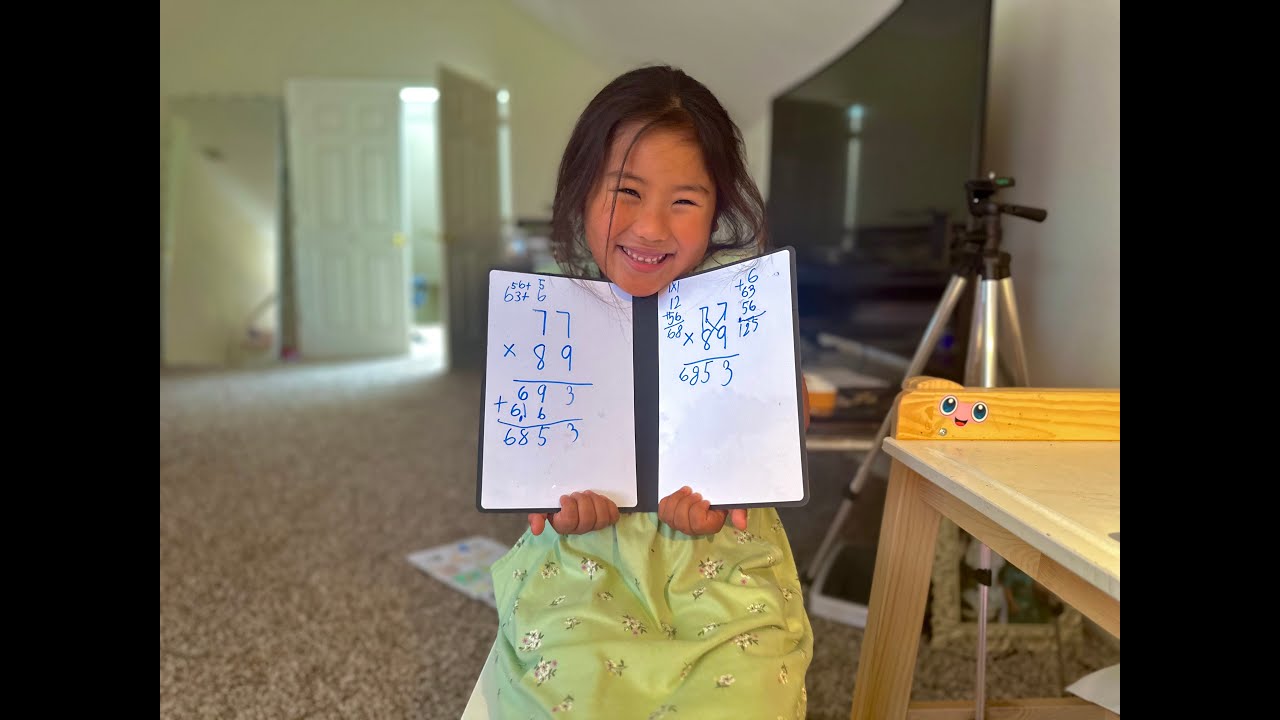 56+ 5
63+ 6
77
× 89
693
+616
6853
1×1
12
+56
68
77
× 89
6853
+6
63
56
125